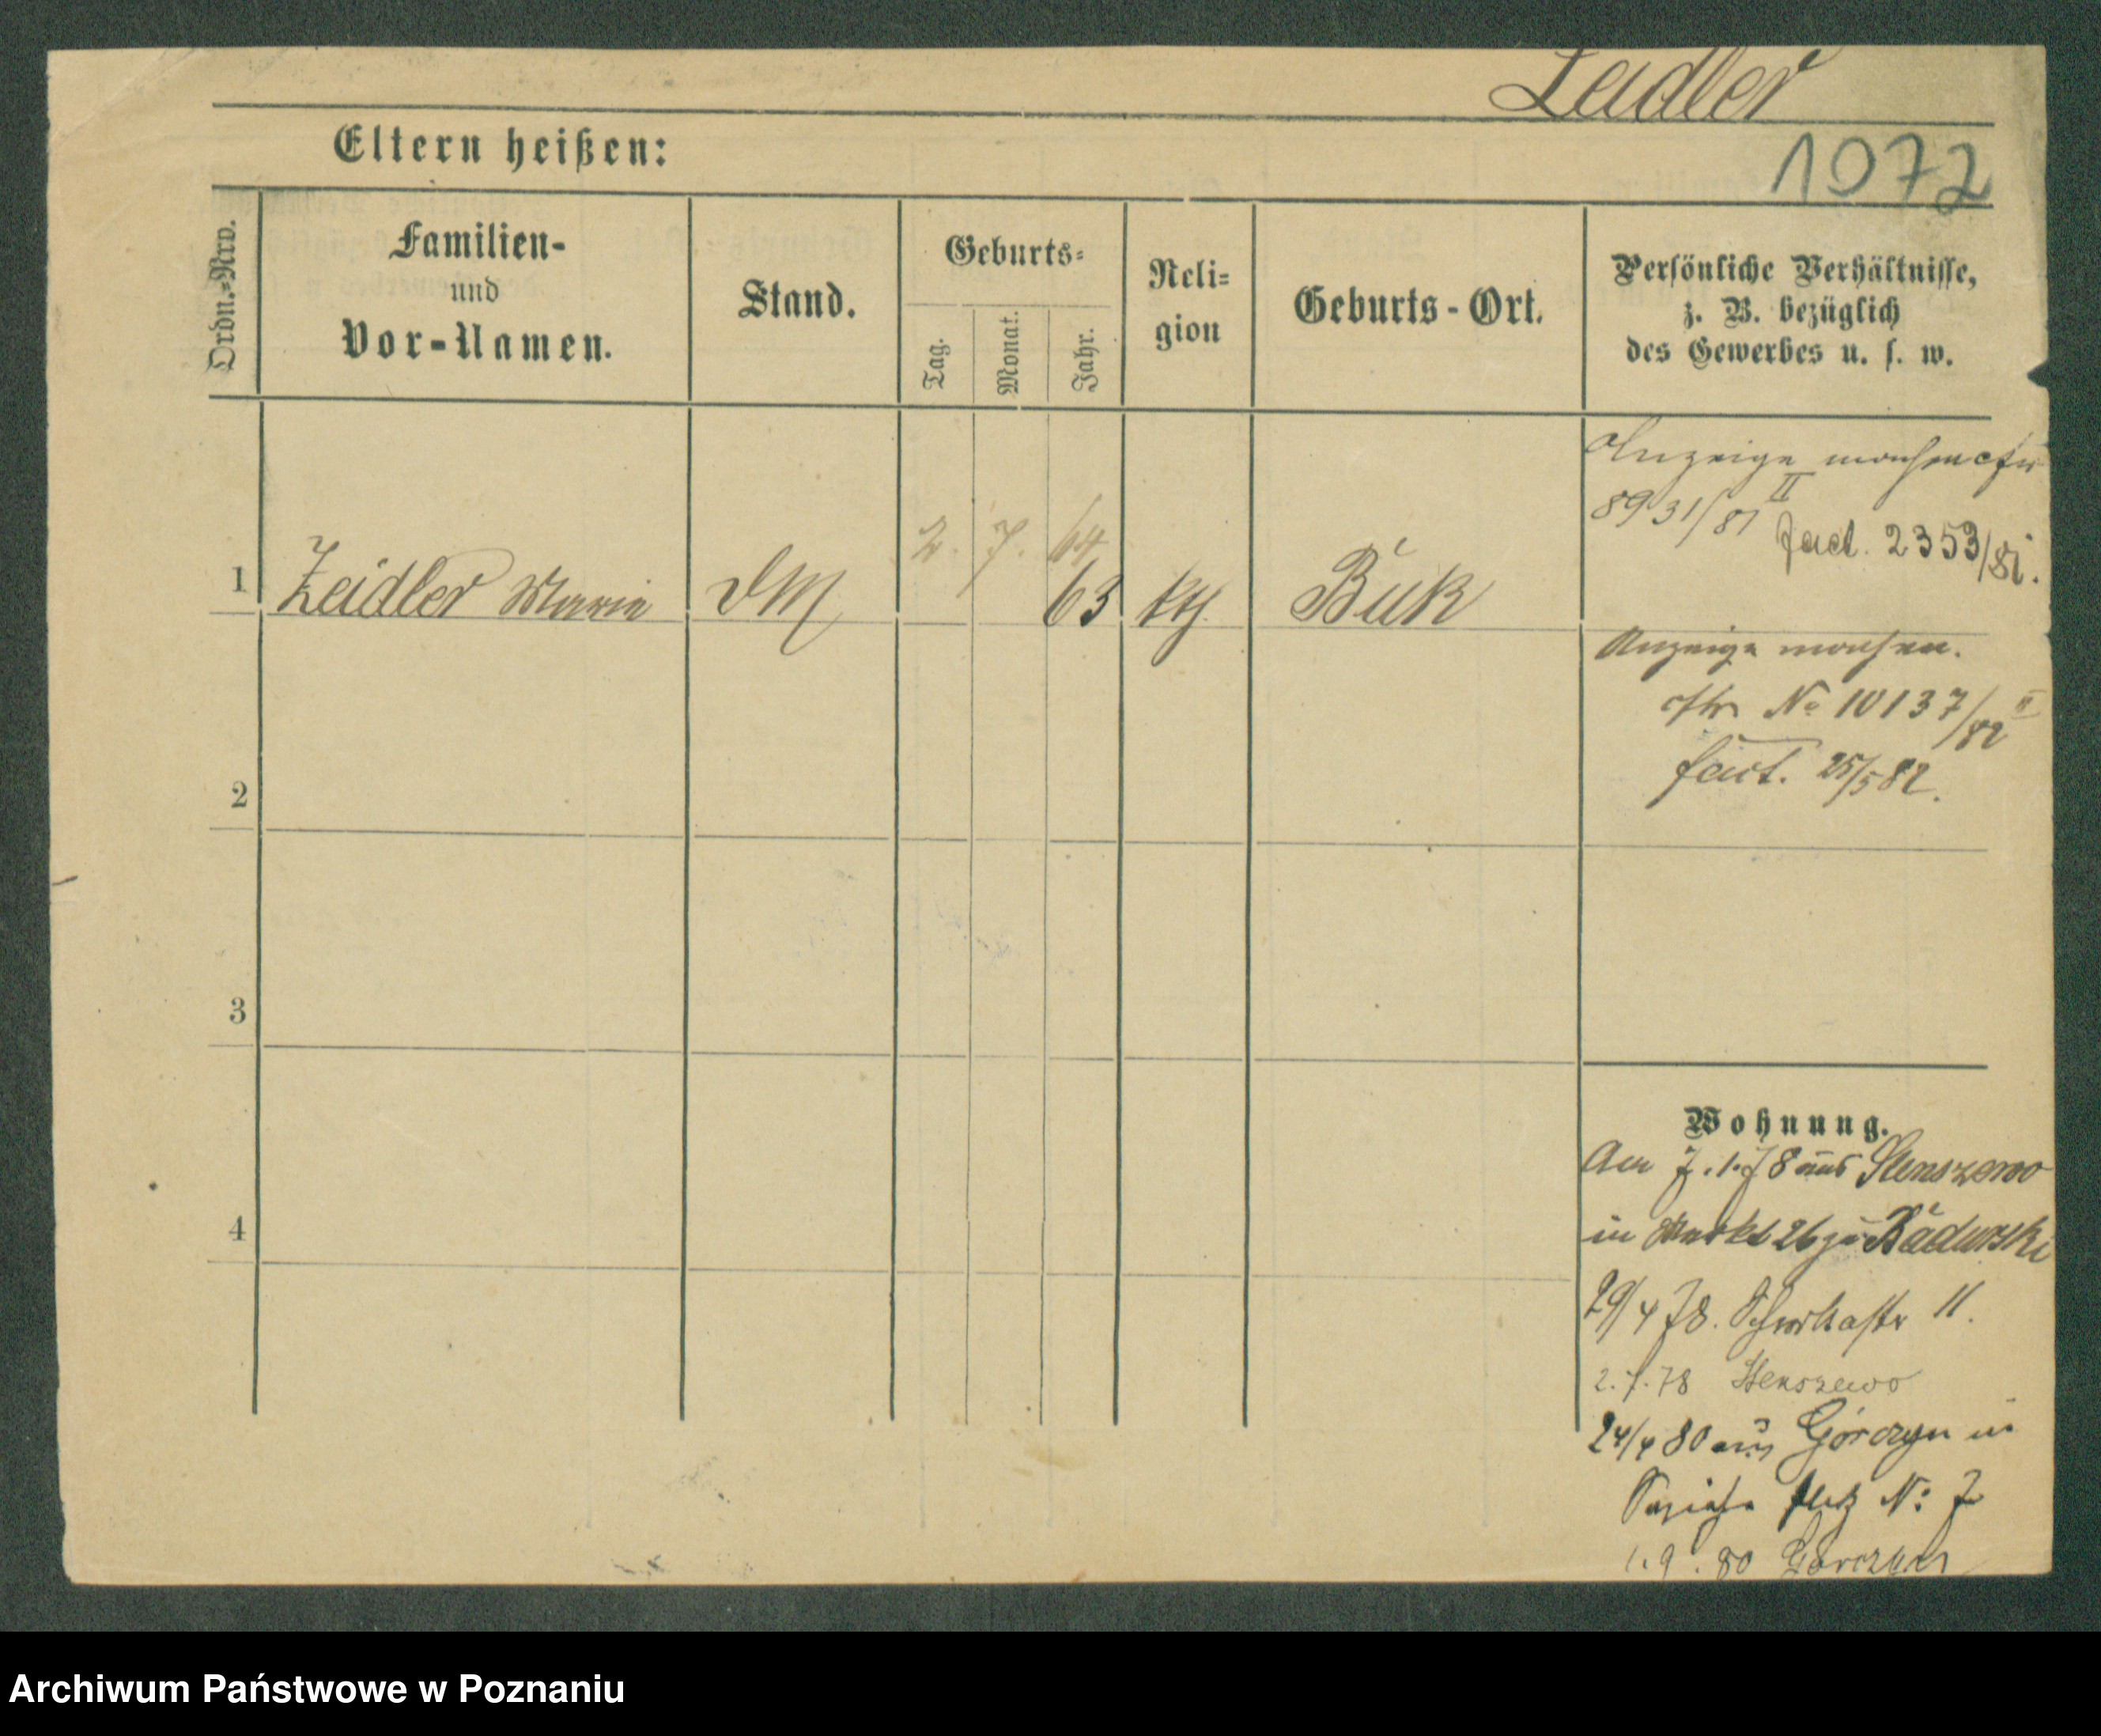 Zeidler
Eltern heißen:
1072
Ordn.-Nro.
Familien-
und
Vor-Namen.
Stand.
Geburts-
Tag.
Monat.
Jahr.
Reli-
gion
Geburts-Ort.
Persönliche Verhältnisse,
z. B. bezüglich
des Gewerbes u. s. w.
1
Zeidler Maria
DM
2. 7. 64
63
kth.
Buk
Anzeige
8931/81 II
fact. 2353/81.
Anzeige
No 10137/82 II
fact. 25/5 82.
2
3
4
Wohnung.
Am 7.1.78 aus Stenszewo
in Markt 26 zu Kadurski
29/4 78. 11.
2.7.78 Stenszewo
24/4 80 aus Górczyn in
Sapieha Platz No 7
1.9.80 Górczyn
Archiwum Państwowe w Poznaniu